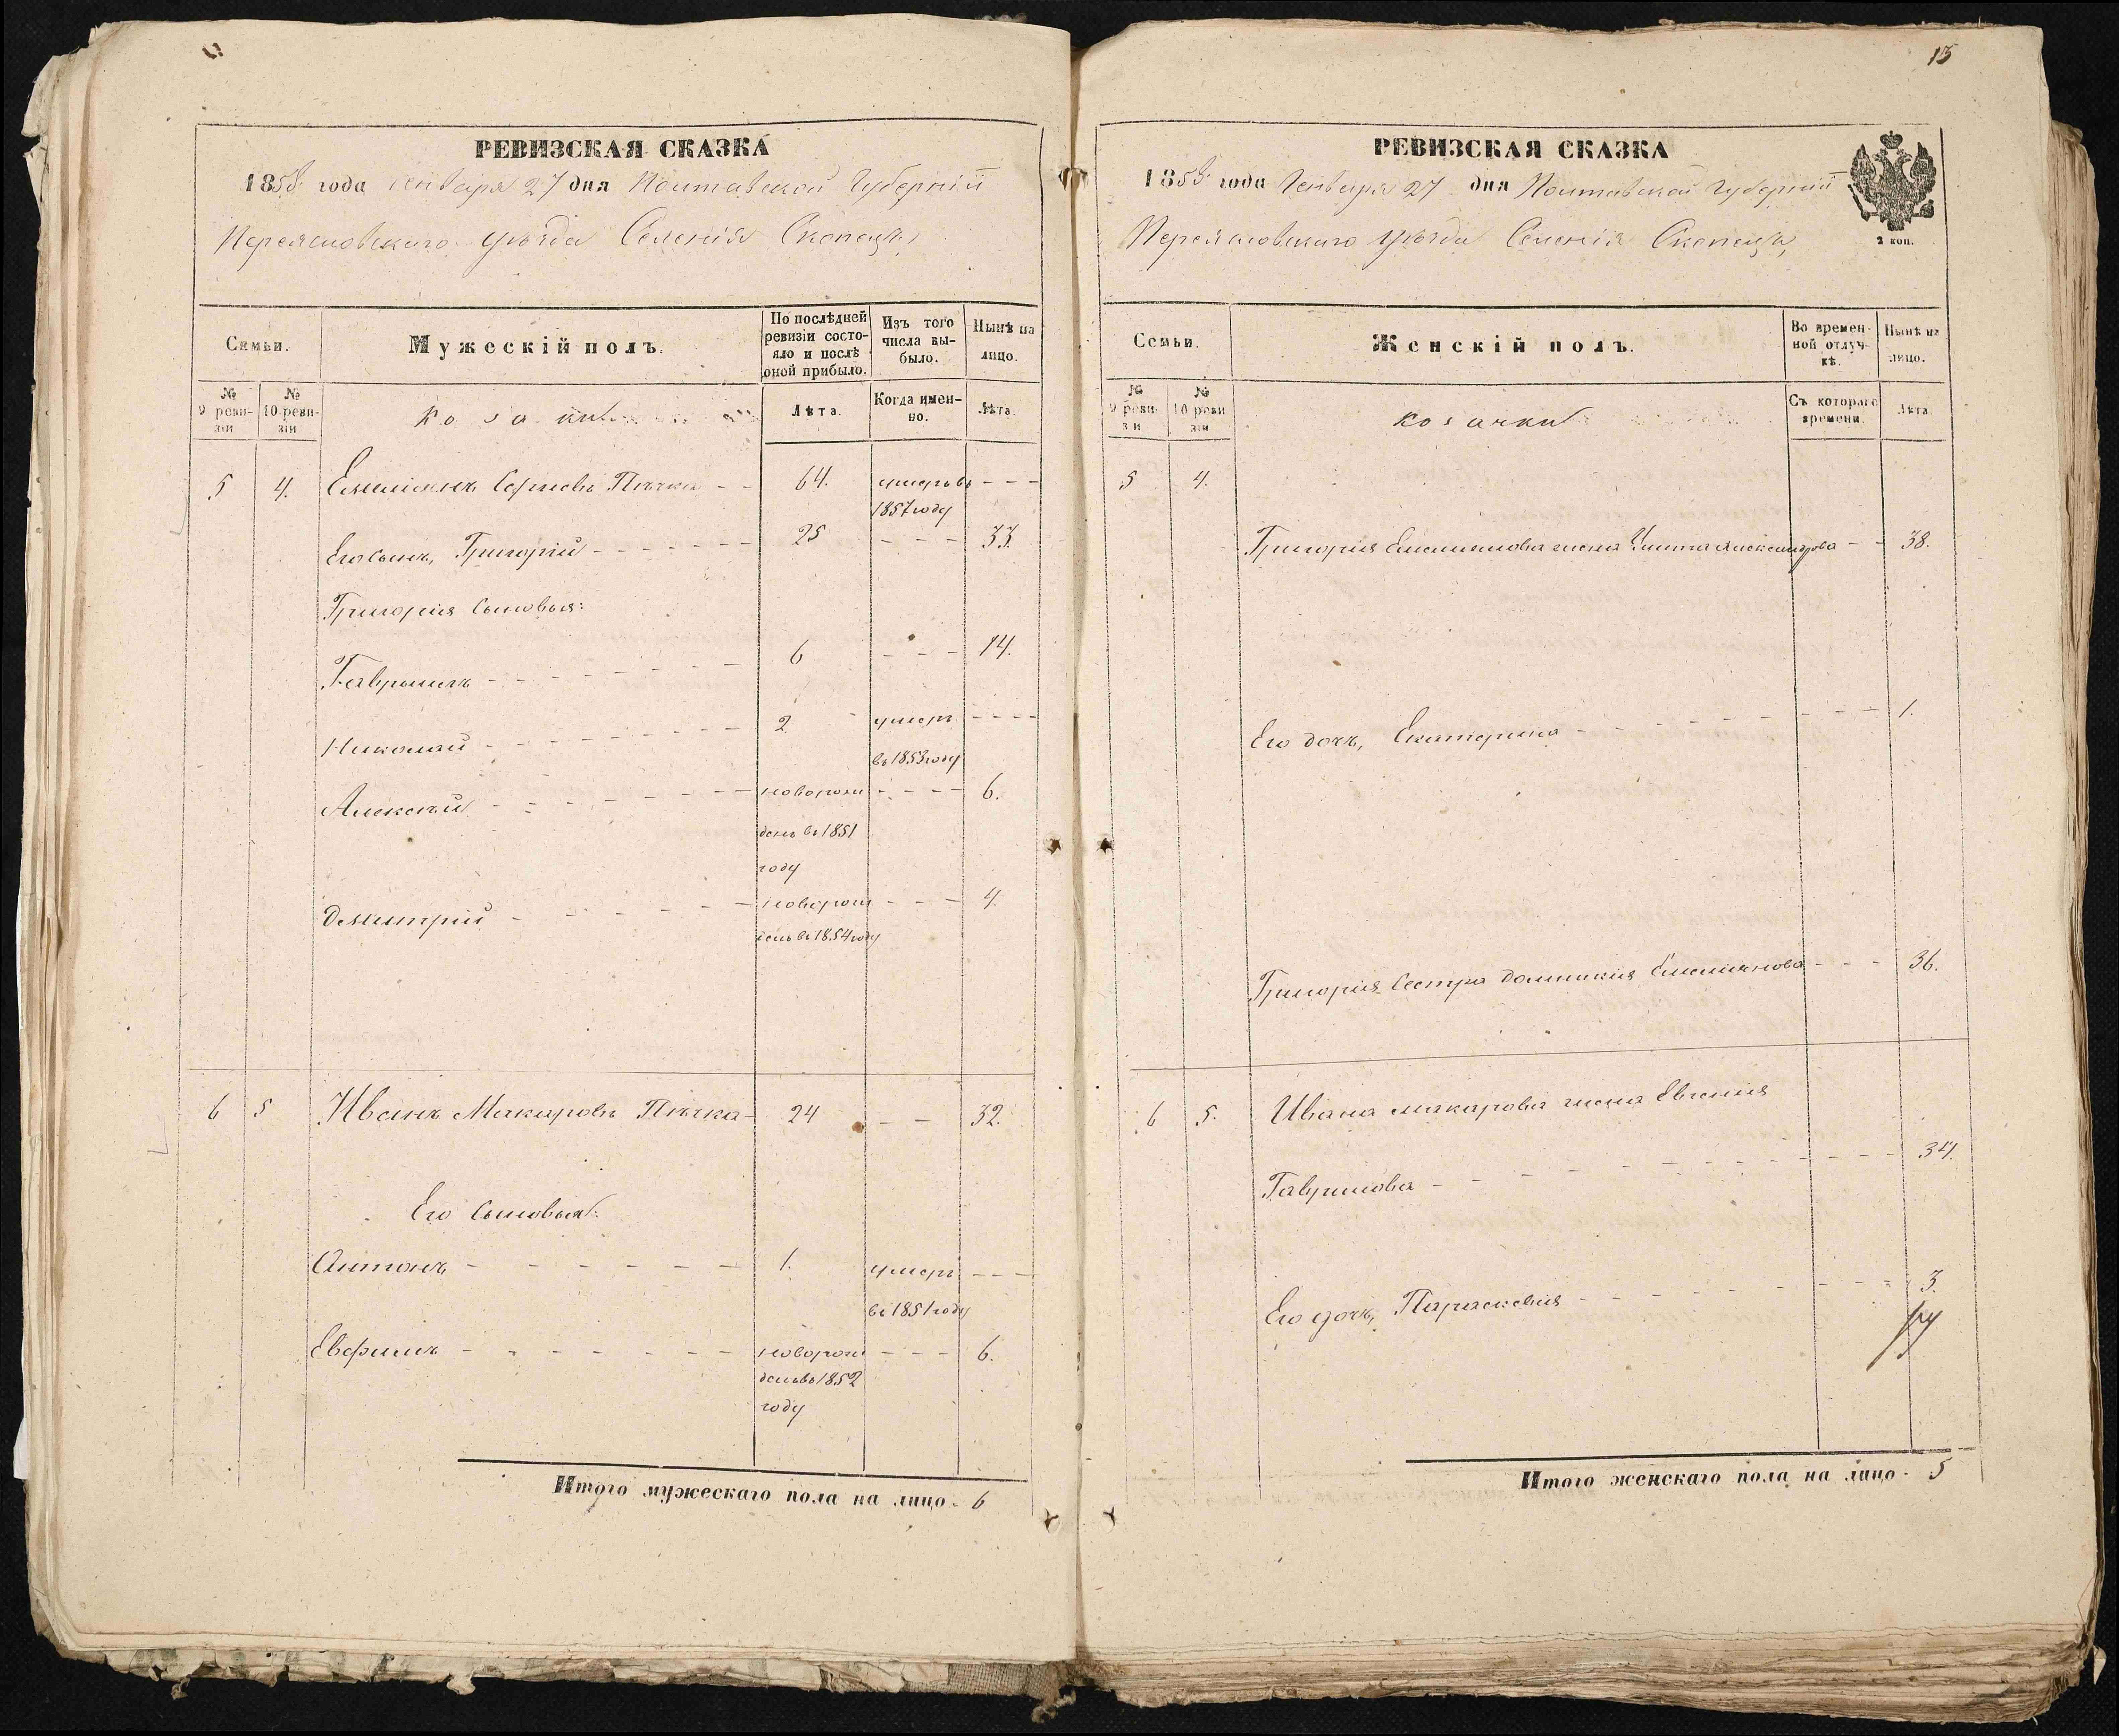 15
РЕВИЗСКАЯ СКАЗКА
1858 года генваря 27 дня Полтавской Губерніи
Переясловскаго уѣзда Селенія Скопецъ,
Семьи.
Мужескій полъ.
По послѣдней ревизіи состояло и послѣ оной прибыло.
Изъ того числа выбыло.
Нынѣ на лицо.
№ 9 ревизіи
№ 10 ревизіи
Козаки
Лѣта.
Когда именно.
Лѣта.
5 4. Емеліянъ Сергѣевъ 64. умеръ въ
1857 году
Его сынъ, Григорій 25 33.
Григорія сыновья:
Гавріилъ 6 14.
Николай 2 умеръ
въ 1853 году
Алексѣй новорож 6.
денъ въ 1851
году
Димитрій новорож 4.
денъ въ 1854 году
6 5 Иванъ Макаровъ 24 32.
Его сыновья:
Антонъ 1. умеръ
въ 1851 году
Евфимъ новорож 6.
денъ въ 1852
году
Итого мужескаго пола на лицо 6
РЕВИЗСКАЯ СКАЗКА
1858 года Генваря 27 дня Полтавской Губерніи
Переясловскаго уѣзда Селенія Скопецъ,
2 коп.
Семьи.
Женскій полъ.
Во временной отлучкѣ.
Нынѣ на лицо.
№ 9 ревизіи
№ 10 ревизіи
козачки
Съ котораго времени.
Лѣта
5 4.
Григорія Емеліянова жена Александрова 38.
Его дочь, Екатерина 1.
Григорія Сестра Домникія Емеліянова 36.
6 5. Ивана Макарова жена Евгенія
Гаврилова 34.
Его дочь, Параскевія 3.
Итого женскаго пола на лицо 5